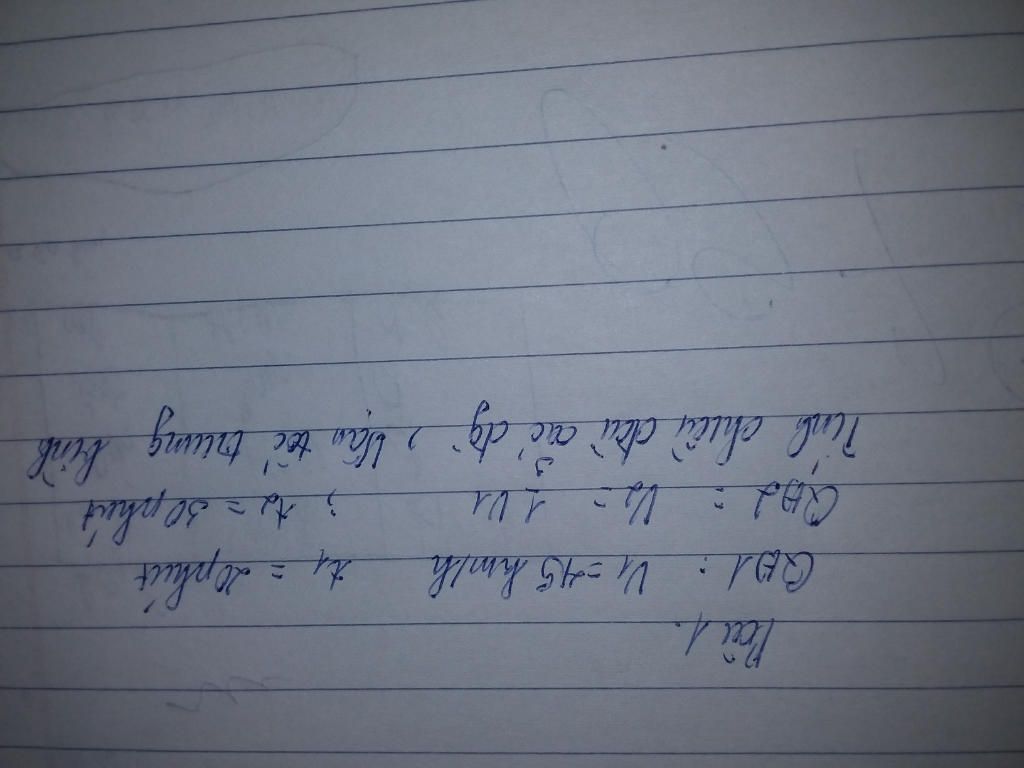 Bài 1.
QĐ1 : V1 = 45 km/h t1 = 20 phút
QĐ2 : V2 = 1/3 V1 ; t2 = 30 phút
Tính chiều dài các đg, vận tốc trung bình